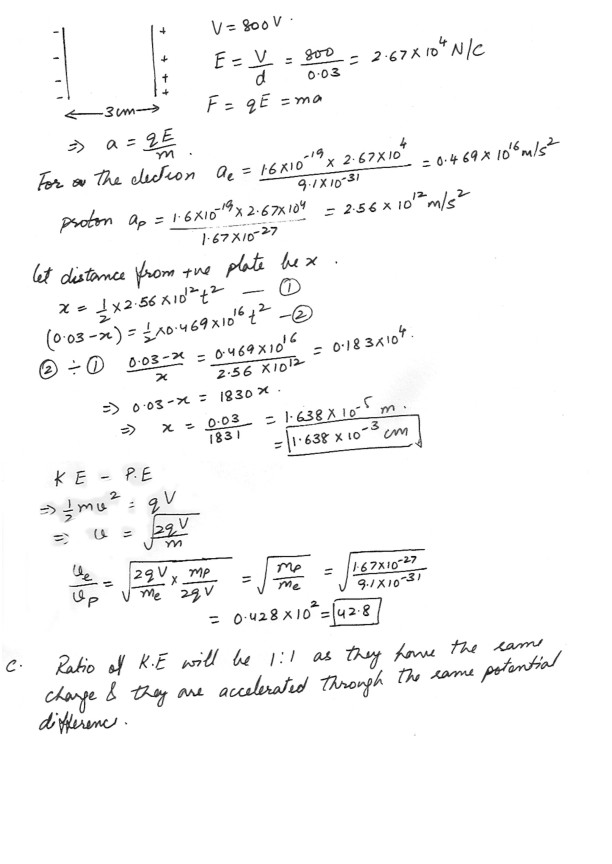 V = 800V.
E = V/d = 800/0.03 = 2.67×10⁴ N/C
F = qE = ma
←3cm→
⇒ a = qE/m.
For the electron aₑ = 1.6×10⁻¹⁹ × 2.67×10⁴ / 9.1×10⁻³¹ = 0.469 × 10¹⁶ m/s²
proton aₚ = 1.6×10⁻¹⁹ × 2.67×10⁴ / 1.67×10⁻²⁷ = 2.56 × 10¹² m/s²
let distance from +ve plate be x.
x = 1/2 × 2.56×10¹² t² — ①
(0.03-x) = 1/2 × 0.469×10¹⁶ t² — ②
② ÷ ① 0.03-x / x = 0.469×10¹⁶ / 2.56 ×10¹² = 0.183×10⁴.
⇒ 0.03-x = 1830x.
⇒ x = 0.03/1831 = 1.638 × 10⁻⁵ m.
= 1.638 × 10⁻³ cm
KE - P.E
⇒ 1/2 mv² = qV
⇒ v = √(2qV/m)
vₑ/vₚ = √(2qV/mₑ × mₚ/2qV) = √(mₚ/mₑ) = √(1.67×10⁻²⁷ / 9.1×10⁻³¹)
= 0.428 × 10² = 42.8
C. Ratio of K.E will be 1:1 as they have the same
charge & they are accelerated through the same potential
difference.